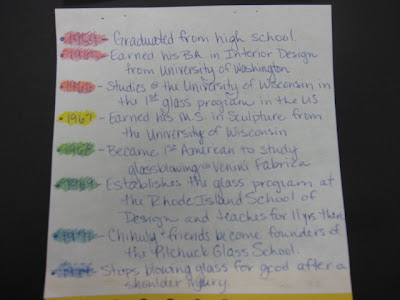 1959 - Graduated from high school.
1965 - Earned his BA in Interior Design
from University of Washington
- Studies @ the University of Wisconsin in
the 1st glass program in the US
1967 - Earned his M.S. in Sculpture from
the University of Wisconsin
1968 - Became 1st American to study
glassblowing @ Venini Fabrica
1969 - Establishes the glass program at
the Rhode Island School of
Design and teaches for 11 yrs there
- Chihuly & friends become founders of
the Pilchuck Glass School.
- Stops blowing glass for good after a
shoulder injury.